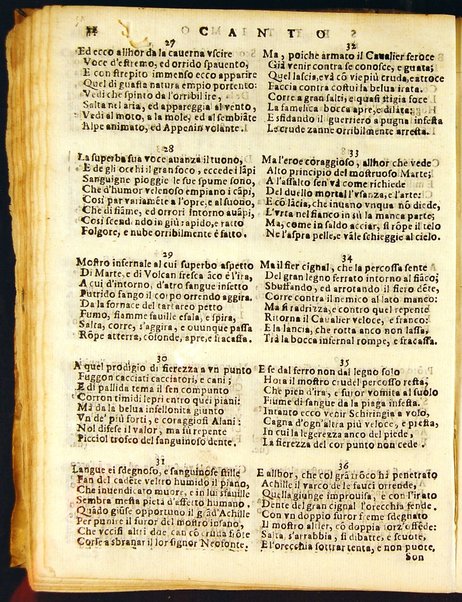 CANTO
27
Ed ecco allhor da la cauerna vscire
Voce d'estremo, ed orrido spauento,
E con strepito immenso ecco apparire
Gran di guasta natura empio portento:
Vedi che spinto da l'orribil ire,
Salta nel aria, ed appareggia al vento,
Vedi al moto, a la mole, ed al sembiāte
Alpe animato, ed Appenin volante.
28
La superba sua voce auanza il tuono,
E de gli occhi il gran foco, eccede i lāpi
Sanguigne pioggie le sue spume sono,
Che d'humor velenoso empiano i cāpi,
Cosi par variaméte a l'opre, e al suono,
Che di fiāme, ed orrori intorno auāpi,
Cosi scendendo in giù rapido, e ratto
Folgore, e nube orribilmente è fatto.
29
Mostro infernale al cui superbo aspetto
Di Marte, e di Volcan fresca āco è l'ira,
A cui d'intorno, d'atro sangue infetto
Putrido sango il corpo orrendo aggira.
Da la fornace del tartareo petto
Fumo, fiamme fauille esala, e spira,
Salta, corre, s'aggira, e ouunque passa
Rōpe atterra, cōfonde, apre, e fracassa.
30
A quel prodigio di fierezza a vn punto
Fuggon cacciati cacciatori, e cani;
E di pallida tema il sen compunto
Corron timidi lepri entro quei piani:
Mà da la belua infellonita giunto
Vn de' più forti, e coraggiosi Alani:
Nol difese il valor, ma fù repente
Picciol trofeo del sanguinoso dente.
31
Langue ei sdegnoso, e sanguinose stille
Fan del cadēte veltro humido il piano,
Che inuendicato muore, e in lui sfauille
Sembra mesta pietà d'affetto humano.
Quādo giúse opportuno il grād'Achille
Per punire il furor del mostro insano,
Che vccisi altri due can cō cruda sorte
Corse a sbranar il lor signor Neofonte.
32
Ma, poiche armato il Caualier feroce
Già venir contra se conosce, e guata;
Quel lascia, e và cō vie più cruda, e atroce
Faccia contra costui la belua irata.
Corre a gran salti, e quasi stigia foce
La famelica bocca apre, e dilata;
E sfidando il guerriero a pugna infesta
Le crude zanne orribilmente arresta.
33
Ma l'eroe coraggioso, allhor che vede
Alto principio del mostruoso Marte;
A l'assalto sen và come richiede
Del duello mortal l'vsanza, e l'arte:
E cō lācia, che inuano vnqua nō diede,
L'vrta nel fianco in sù la manca parte;
Ma, come in saldo acciar, si rōpe il telo
Ne l'aspra pelle, e vāle schieggie al cielo.
34
Ma il fier cignal, che la percossa sente
Del gran legno ferrato intorno al fiāco;
Sbuffando, ed arrotando il fiero dēte,
Corre contra il nemico al lato manco:
Ma si radrizza, e contro quel repente
Ritorna il Caualier veloce, e franco:
E la lancia, che rotta anco non lassa,
Trà la bocca infernal rompe, e fracassa.
35
E se dal ferro non dal legno solo
Hora il mostro crudel percosso resta;
Che pien d'ira, e furor vomita al suolo
Fiume di sangue da la piaga infesta.
Intanto ecco venir Schiringia a volo,
Cagna d'ogn'altra più veloce, e presta,
In cui la legerezza anco del piede,
La fierezza del cor punto non cede.
36
E allhor, che col grā trōco hà penetrato
Achille il varco de le fauci orrende;
Quella giunge improuisa, e con l'irato
Dente del gran cignal l'orecchia fende.
Con vn doppio furor seme sdegnato
Il mostro altier, cō doppia forz'offēde:
Salta, s'arrabbia, si dibatte, e scuote,
E l'orecchia sottrar tenta, e non puote.
Son